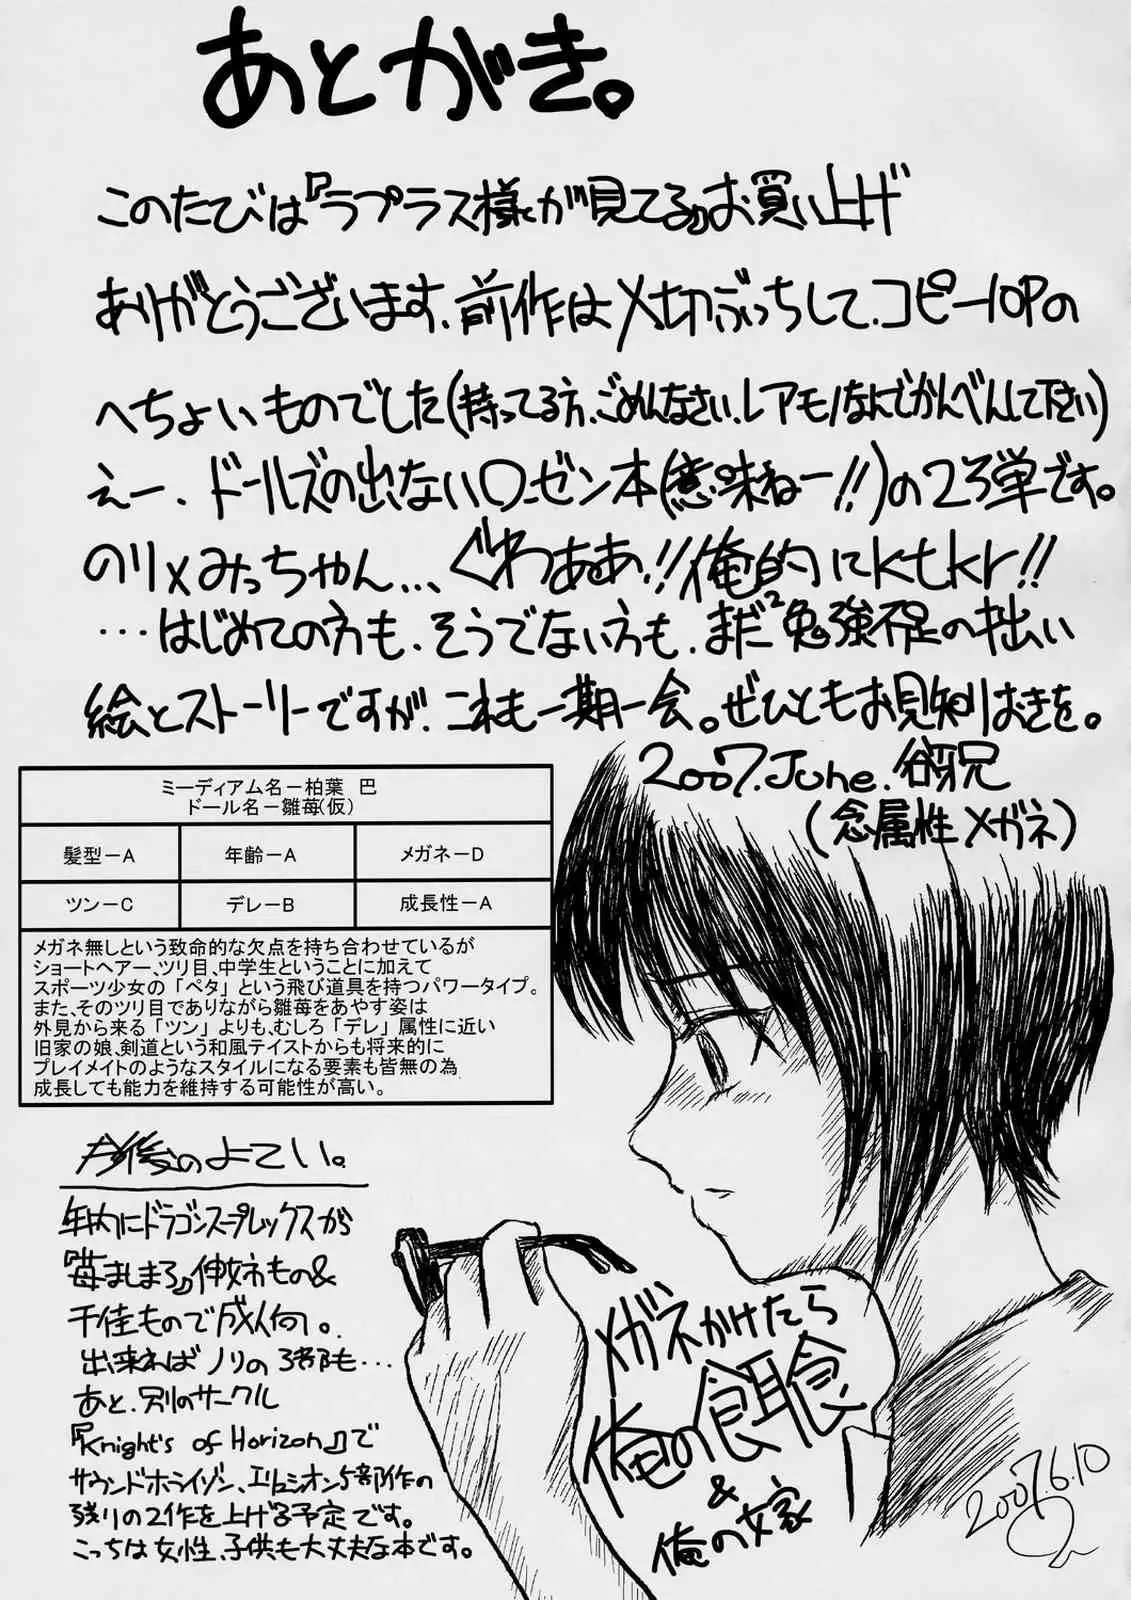 あとがき。
このたびは『ラプラス様が見てる』お買い上げ
ありがとうございます、前作は〆切ぶっちして、コピー10Pの
へちょいものでした(持ってる方、ごめんなさい、レアモノなんでかんべんして下さい)
えー、ドールズの出ないローゼン本(意味ねー!!)の2ろ弾です。
のり×みっちゃん…、くわぁぁ!!俺的にktkr!!
…はじめての方も、そうでない方も、まだ²勉強不足の拙い
絵とストーリーですが、これも一期一会。ぜひともお見知りおきを。
2007.June.谷牙兄
(念属性メガネ)
ミーディアム名－柏葉　巴
ドール名－雛苺(仮)
髪型－A　年齢－A　メガネ－D
ツン－C　デレ－B　成長性－A
メガネ無しという致命的な欠点を持ち合わせているが
ショートヘアー、ツリ目、中学生ということに加えて
スポーツ少女の「ペタ」という飛び道具を持つパワータイプ。
また、そのツリ目でありながら雛苺をあやす姿は
外見から来る「ツン」よりも、むしろ「デレ」属性に近い
旧家の娘、剣道という和風テイストからも将来的に
プレイメイトのようなスタイルになる要素も皆無の為
成長しても能力を維持する可能性が高い。
今後のよてい。
年内にドラゴンスープレックスが
『苺ましまろ』伸姉もの&
千佳もので成人向。
出来ればノリの3部も…
あと、別のサークル
『Knight's of Horizon』で
サウンドホライゾン、エリュシオン5部作の
残りの2作を上げる予定です。
こっちは女性、子供も大丈夫な本です。
メガネかけたら
俺の餌食
&
俺の嫁
2007.6.10